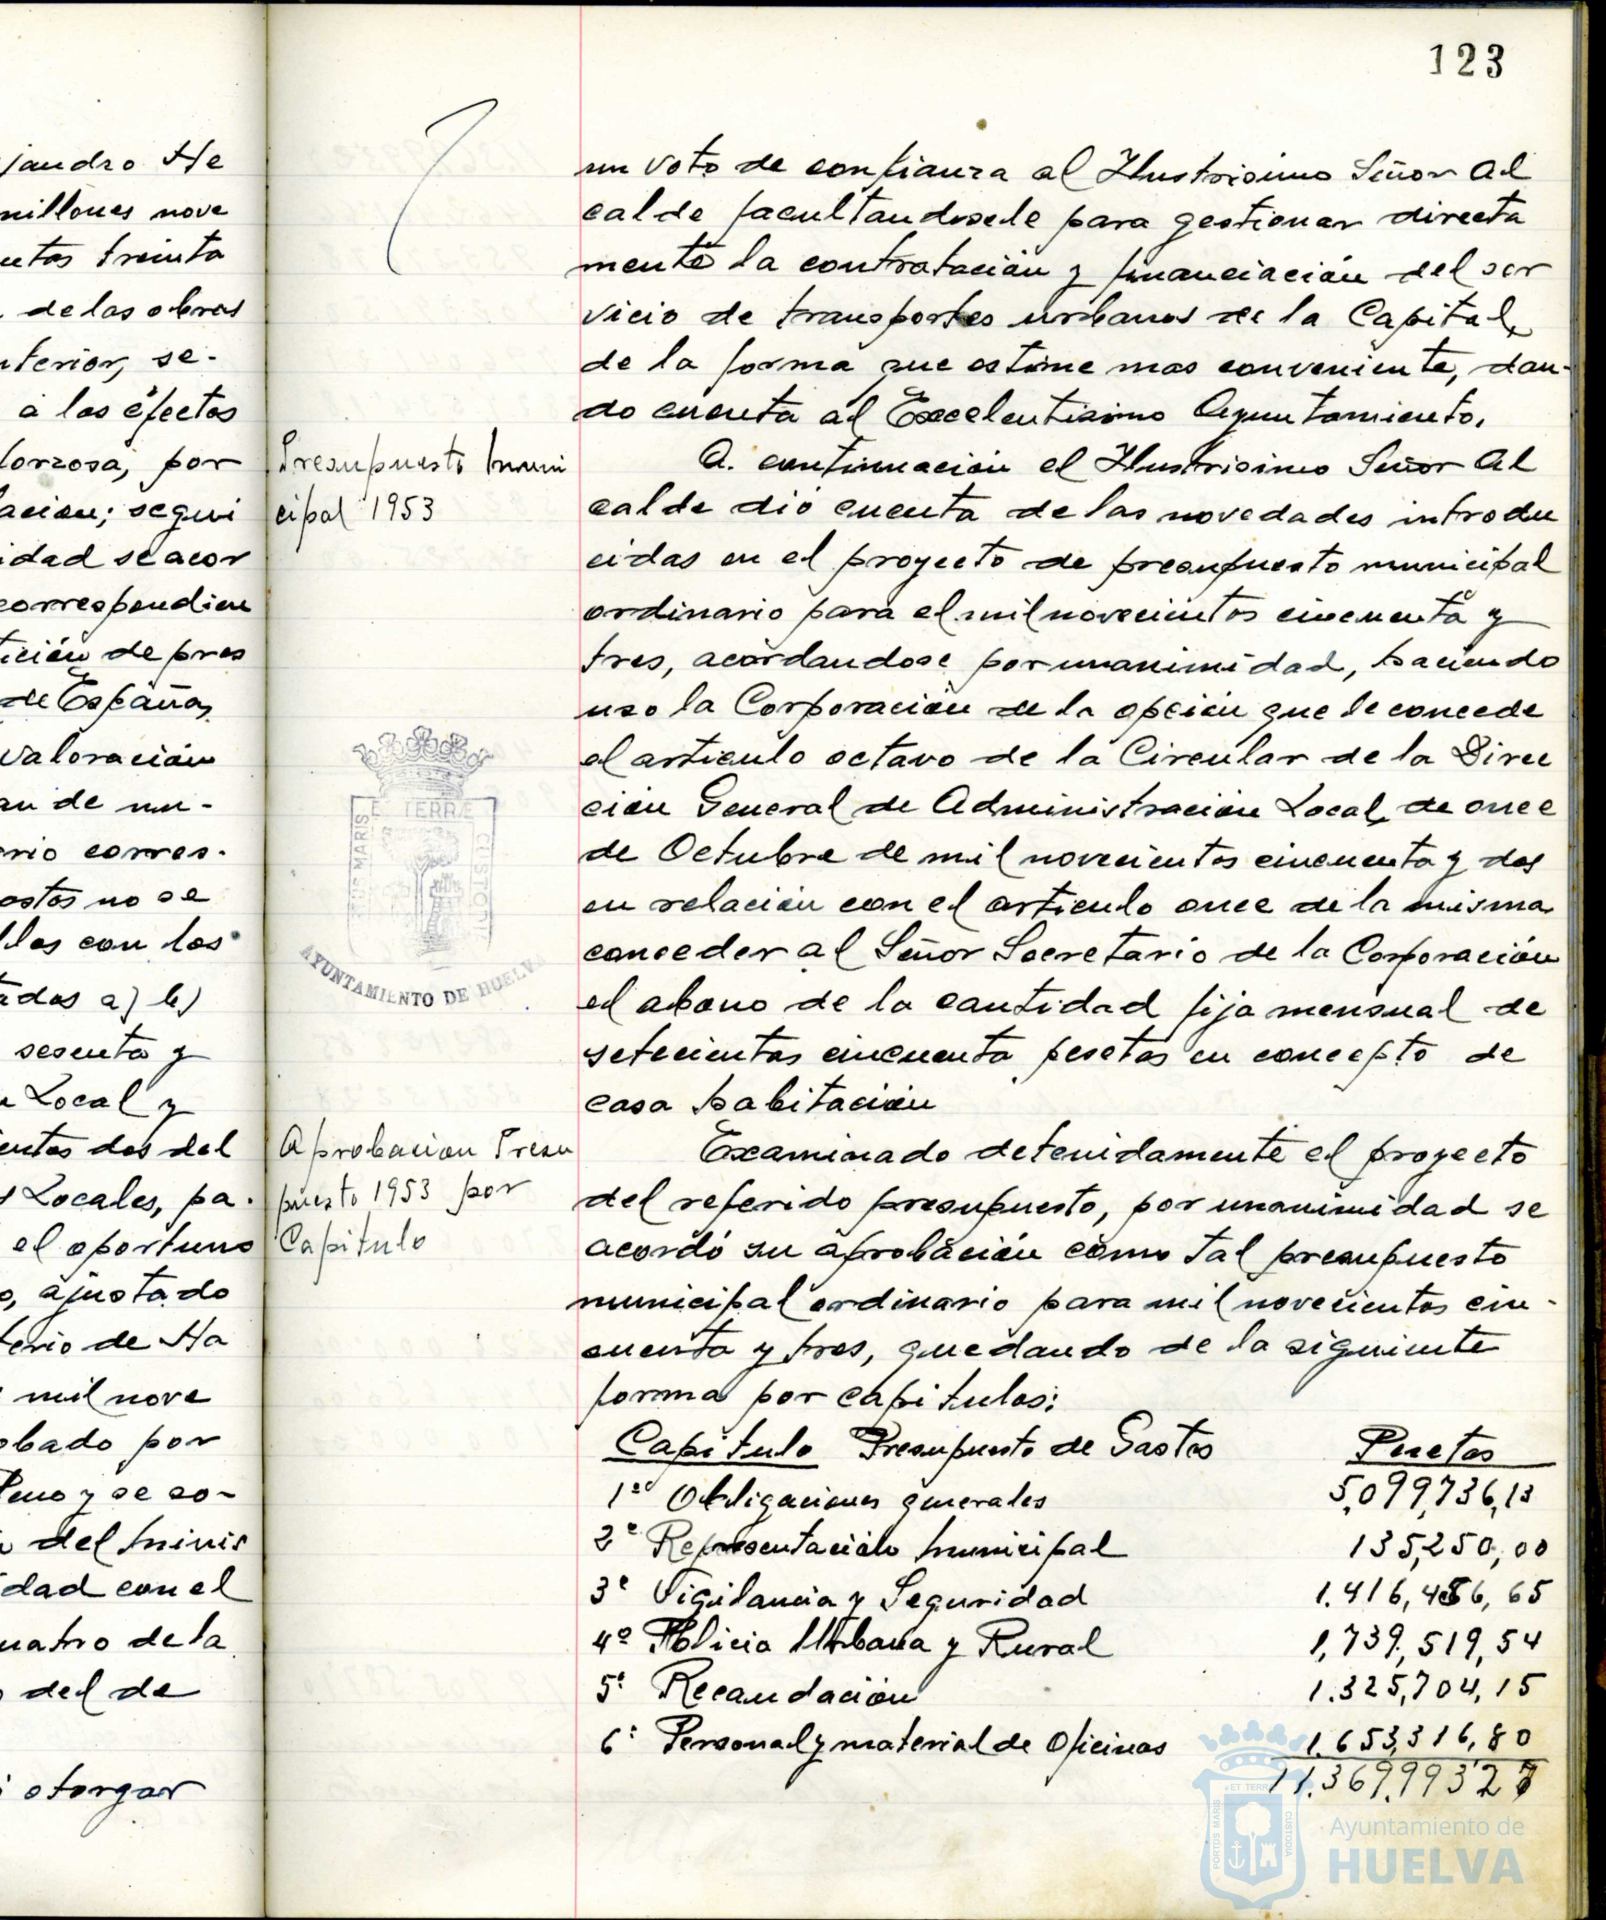 123
jandro He
millones nove
entos treinta
de las obras
nterior, se-
a los efectos
lorzosa, por
lacion; segui
idad se acor
correspondien
tición de pres
de España,
valoración
an de mu-
ario corres-
ostos no se
llos con los
tados a) b)
sesenta y
n Local y
ientos dos del
s Locales, pa-
el oportuno
o, ajustado
terio de Ha
mil nove
obado por
Pleno y se so-
del Minis
idad con el
uatro de la
del de
otorgar
un voto de confianza al Ilustrisimo Señor Al
calde facultandosele para gestionar directa
mente la contratación y financiación del ser
vicio de transportes urbanos de la Capital,
de la forma que estime mas conveniente, dan-
do cuenta al Excelentisimo Ayuntamiento.
Presupuesto Muni
cipal 1953
A continuación el Ilustrisimo Señor Al
calde dió cuenta de las novedades introdu
cidas en el proyecto de presupuesto municipal
ordinario para el mil novecientos cincuenta y
tres, acordandose por unanimidad, haciendo
uso la Corporación de la opción que le concede
el articulo octavo de la Circular de la Direc
ción General de Administración Local, de once
de Octubre de mil novecientos cincuenta y dos
en relación con el articulo once de la misma,
conceder al Señor Secretario de la Corporación
el abono de la cantidad fija mensual de
setecientas cincuenta pesetas en concepto de
casa habitación
PORTUS MARIS
ET TERRÆ
CUSTODI
AYUNTAMIENTO DE HUELVA
Aprobacion Presu
puesto 1953 por
Capitulo
Examinado detenidamente el proyecto
del referido presupuesto, por unanimidad se
acordó su aprobación como tal presupuesto
municipal ordinario para mil novecientos cin-
cuenta y tres, quedando de la siguiente
forma por capitulos:
Capitulo Presupuesto de Gastos Pesetas
1º Obligaciones generales 5,099,736,13
2º Representación Municipal 135,250,00
3º Vigilancia y Seguridad 1.416,466,65
4º Policia Urbana y Rural 1,739,519,54
5º Recaudación 1.325,704,15
6º Personal y material de Oficinas 1.653,316,80
11.369.993'27
PORTUS MARIS
ET TERRÆ
CUSTODIA
Ayuntamiento de
HUELVA